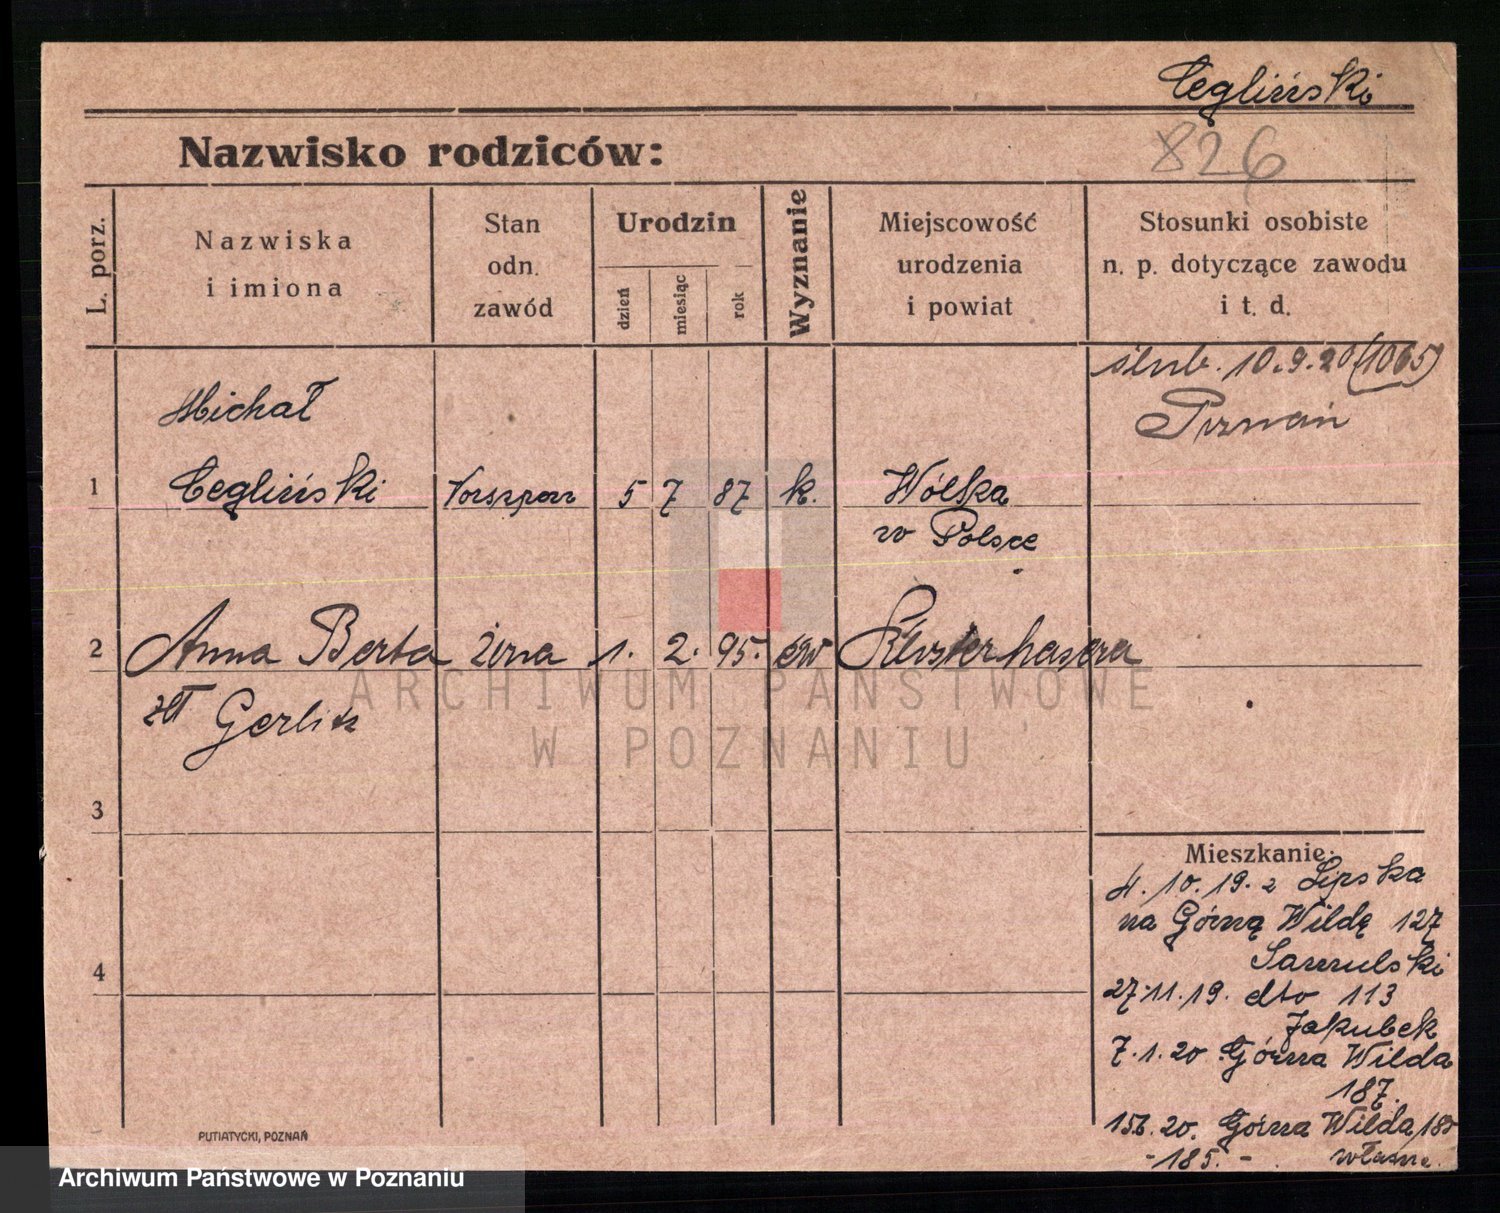 Cegliński
826
Nazwisko rodziców:
L. porz.
Nazwiska
i imiona
Stan
odn.
zawód
Urodzin
dzień
miesiąc
rok
Wyznanie
Miejscowość
urodzenia
i powiat
Stosunki osobiste
n. p. dotyczące zawodu
i t. d.
ślub. 10.9.20 (1065)
Poznań
Michał
1 Cegliński 5 7 87 k. Wólka
w Polsce
2 Anna Berta żona 1. 2. 95. ew
Gerlitz
3
4
Mieszkanie:
4.10.19. z Lipska
na Górną Wildę 127
Samulski
27.11.19. dto 113
Jakubek
7.1.20 Górna Wilda
187.
15.6.20. Górna Wilda
- 185. - własne.
PUTIATYCKI, POZNAŃ
ARCHIWUM PAŃSTWOWE
W POZNANIU
Archiwum Państwowe w Poznaniu